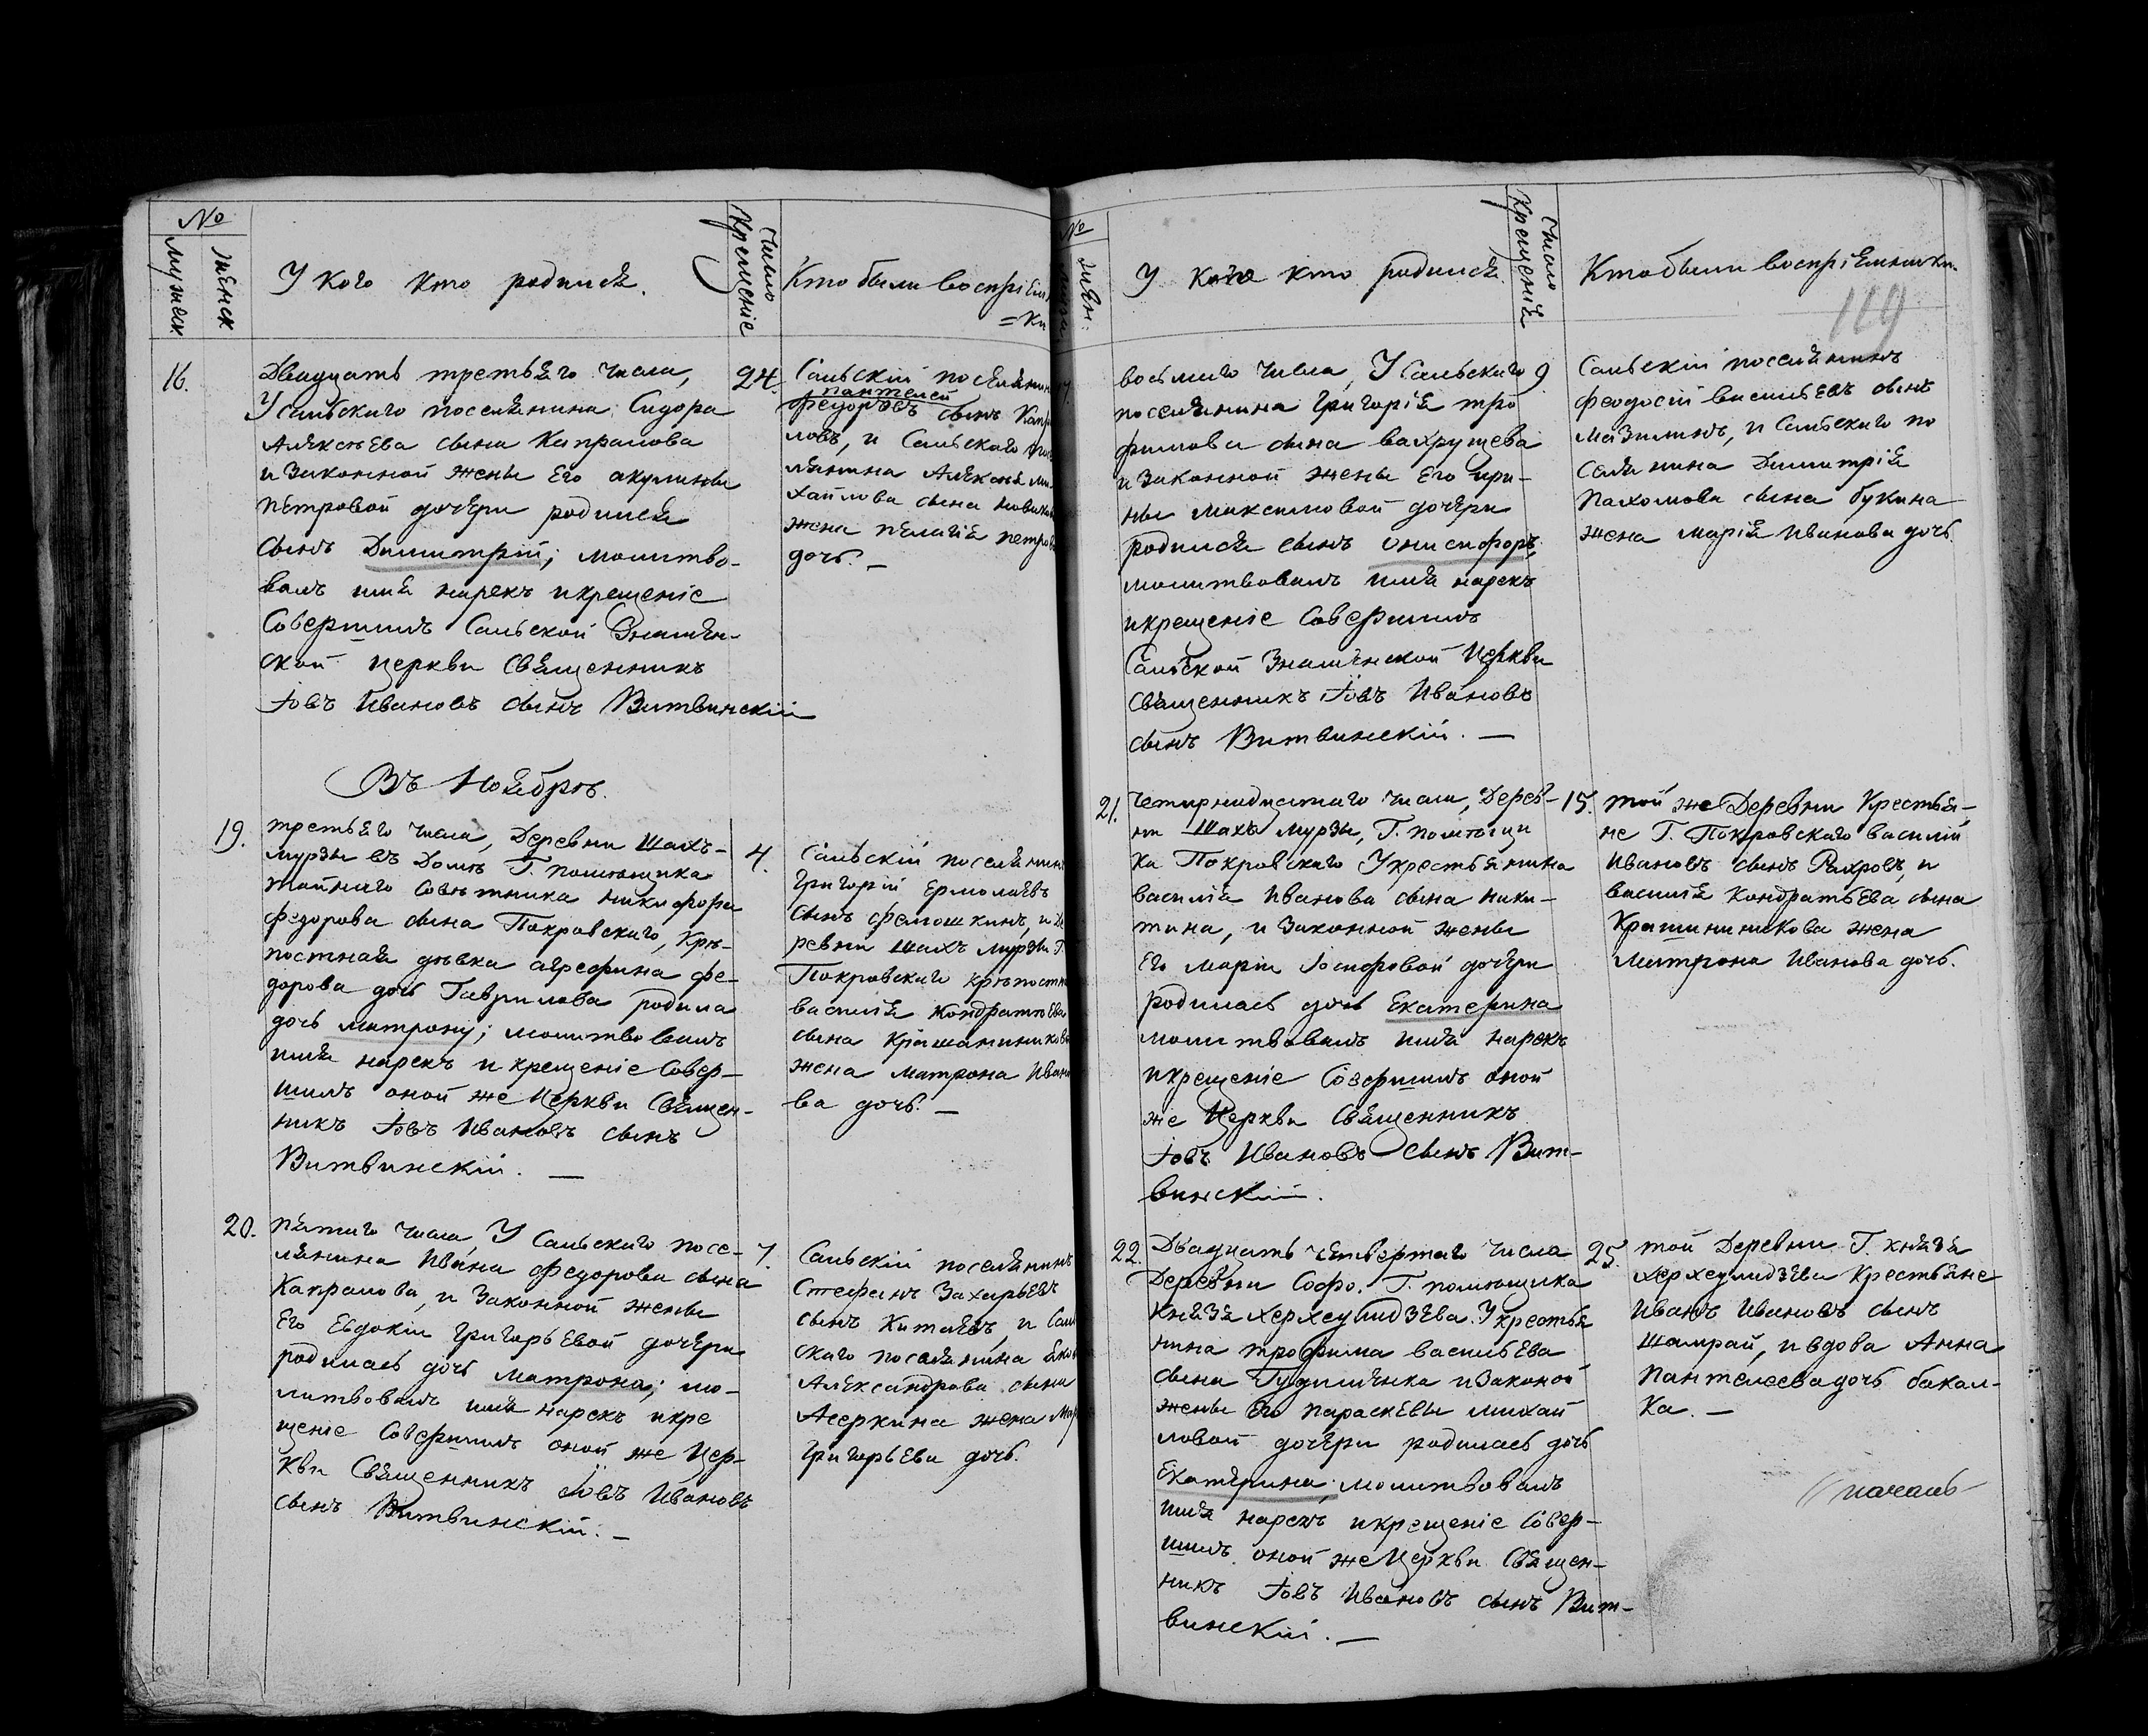 №
мужеск
женск
У кого кто родился.
Число Крещенiе
Кто были воспрiем
=ки
16.
Двадцать третьяго числа,
У Сальскаго поселянина Сидора
Алексѣева сына Капралова
и Законной жены Его акулины
петровой дочери родился
сынъ Димитрiй; молитво-
валъ имя нарекъ и крещенiе
Совершилъ Сальской Знамен-
ской церкви Священникъ
Iовъ Ивановъ сынъ Витвинскiй
24.
Сальскiй поселянин
пантелей
федоровъ сынъ Капра
ловъ, и Сальскаго посе
лянина Алексея ми-
хайлова сына
жена пелагiя петрова
дочь. —
Въ Ноябрѣ.
19.
третьяго числа, Деревни Шахъ-
мурзы въ Домѣ Г. помѣщика
тайнаго Совѣтника никифора
федорова сына Покровскаго, Крѣ-
постная дѣвка агрефина фе-
дорова дочь Гаврилова родила
дочь матрону; молитвовалъ
имя нарекъ и крещенiе Совер-
шилъ оной же Церкви Священ-
никъ Iовъ Ивановъ сынъ
Витвинскiй. —
4.
Сальскiй поселянинъ
Григорiй Ермолаевъ
сынъ фемошкинъ, и де
ревни шахъ мурзы Г.
Покровскаго крѣпостн
василiя Кондратьева
сына Крашанинникова
жена матрона Ивано
ва дочь. —
20.
пятаго числа, У Сальскаго посе-
лянина Ивана федорова сына
Капралова, и Законной жены
Его Евдокiи Григорьевой дочери
родилась дочь матрона; мо-
литвовалъ имя нарекъ и кре
щенiе Совершилъ оной же Цер-
кви Священникъ Iовъ Ивановъ
сынъ Витвинскiй. —
7.
Сальскiй поселянинъ
Стефанъ Захарьевъ
сынъ Китаевъ, и Саль
скаго поселянина Яков
Александрова сына
Асеркина жена Мар
Григорьева дочь.
№
жен.
У кого кто родился.
Число Крещенiя
Кто были воспрiемники.
119
восьмаго числа, У Сальскаго
поселянина Григорiя тро
фимова сына вахрушева
и Законной жены Его ири-
ны максимовой дочери
родился сынъ онисифоръ,
молитвовалъ имя нарекъ
и крещенiе Совершилъ
Сальской Знаменской Церкви
Священникъ Iовъ Ивановъ
сынъ Витвинскiй. —
9
Сальскiй поселянинъ
феодосiй васильевъ сынъ
мазилинъ, и Сальскаго по
селянина Димитрiя
Пахомова сына букина
жена марiя Иванова дочь.
21.
четырнадцатаго числа, Дерев-
ни Шахъ мурзы, Г. помѣщи
ка Покровскаго У крестьянина
василiя Иванова сына ники-
тина, и Законной жены
Его марiи Iосифовой дочери
родилась дочь Екатерина
молитвовалъ имя нарекъ
и крещенiе Совершилъ оной
же Церкви Священникъ
Iовъ Ивановъ сынъ Вит-
винскiй.
15.
той же Деревни Крестья-
не Г. Покровскаго василiй
Ивановъ сынъ Рахровъ, и
василiя Кондратьева сына
Крашининикова жена
матрона Иванова дочь.
22.
Двадцать четвертаго числа
Деревни Софо. Г. помѣщика
Князя херхеулидзева. У крестья
нина трофима васильева
сына Гудименка и Законой
жены Его параскевы михай
ловой дочери родилась дочь
Екатерина, молитвовалъ
имя нарекъ и крещенiе Совер-
шилъ оной же Церкви Священ-
никъ Iовъ Ивановъ сынъ Вит-
винскiй. —
25.
той Деревни Г. князя
херхеулидзева Крестьяне
Иванъ Ивановъ сынъ
шамрай, и вдова Анна
Пантелеева дочь бакал-
ка. —